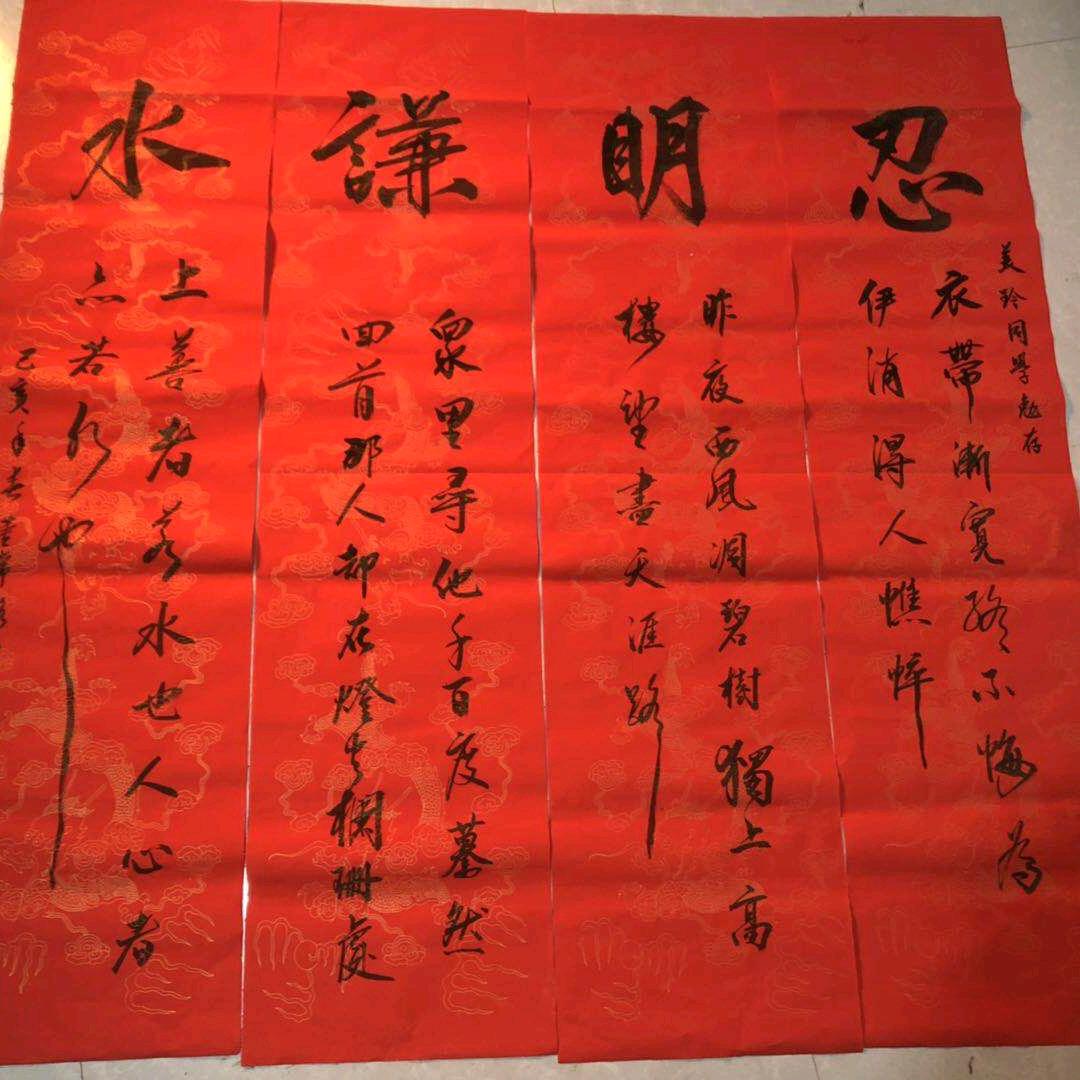 忍
美玲同學勉存
衣帶漸寬終不悔為
伊消得人憔悴
明
昨夜西風凋碧樹獨上高
樓望盡天涯路
謙
衆里尋他千百度驀然
回首那人却在燈火欄珊處
水
上善者若水也人心者
亦若水也
己亥年春